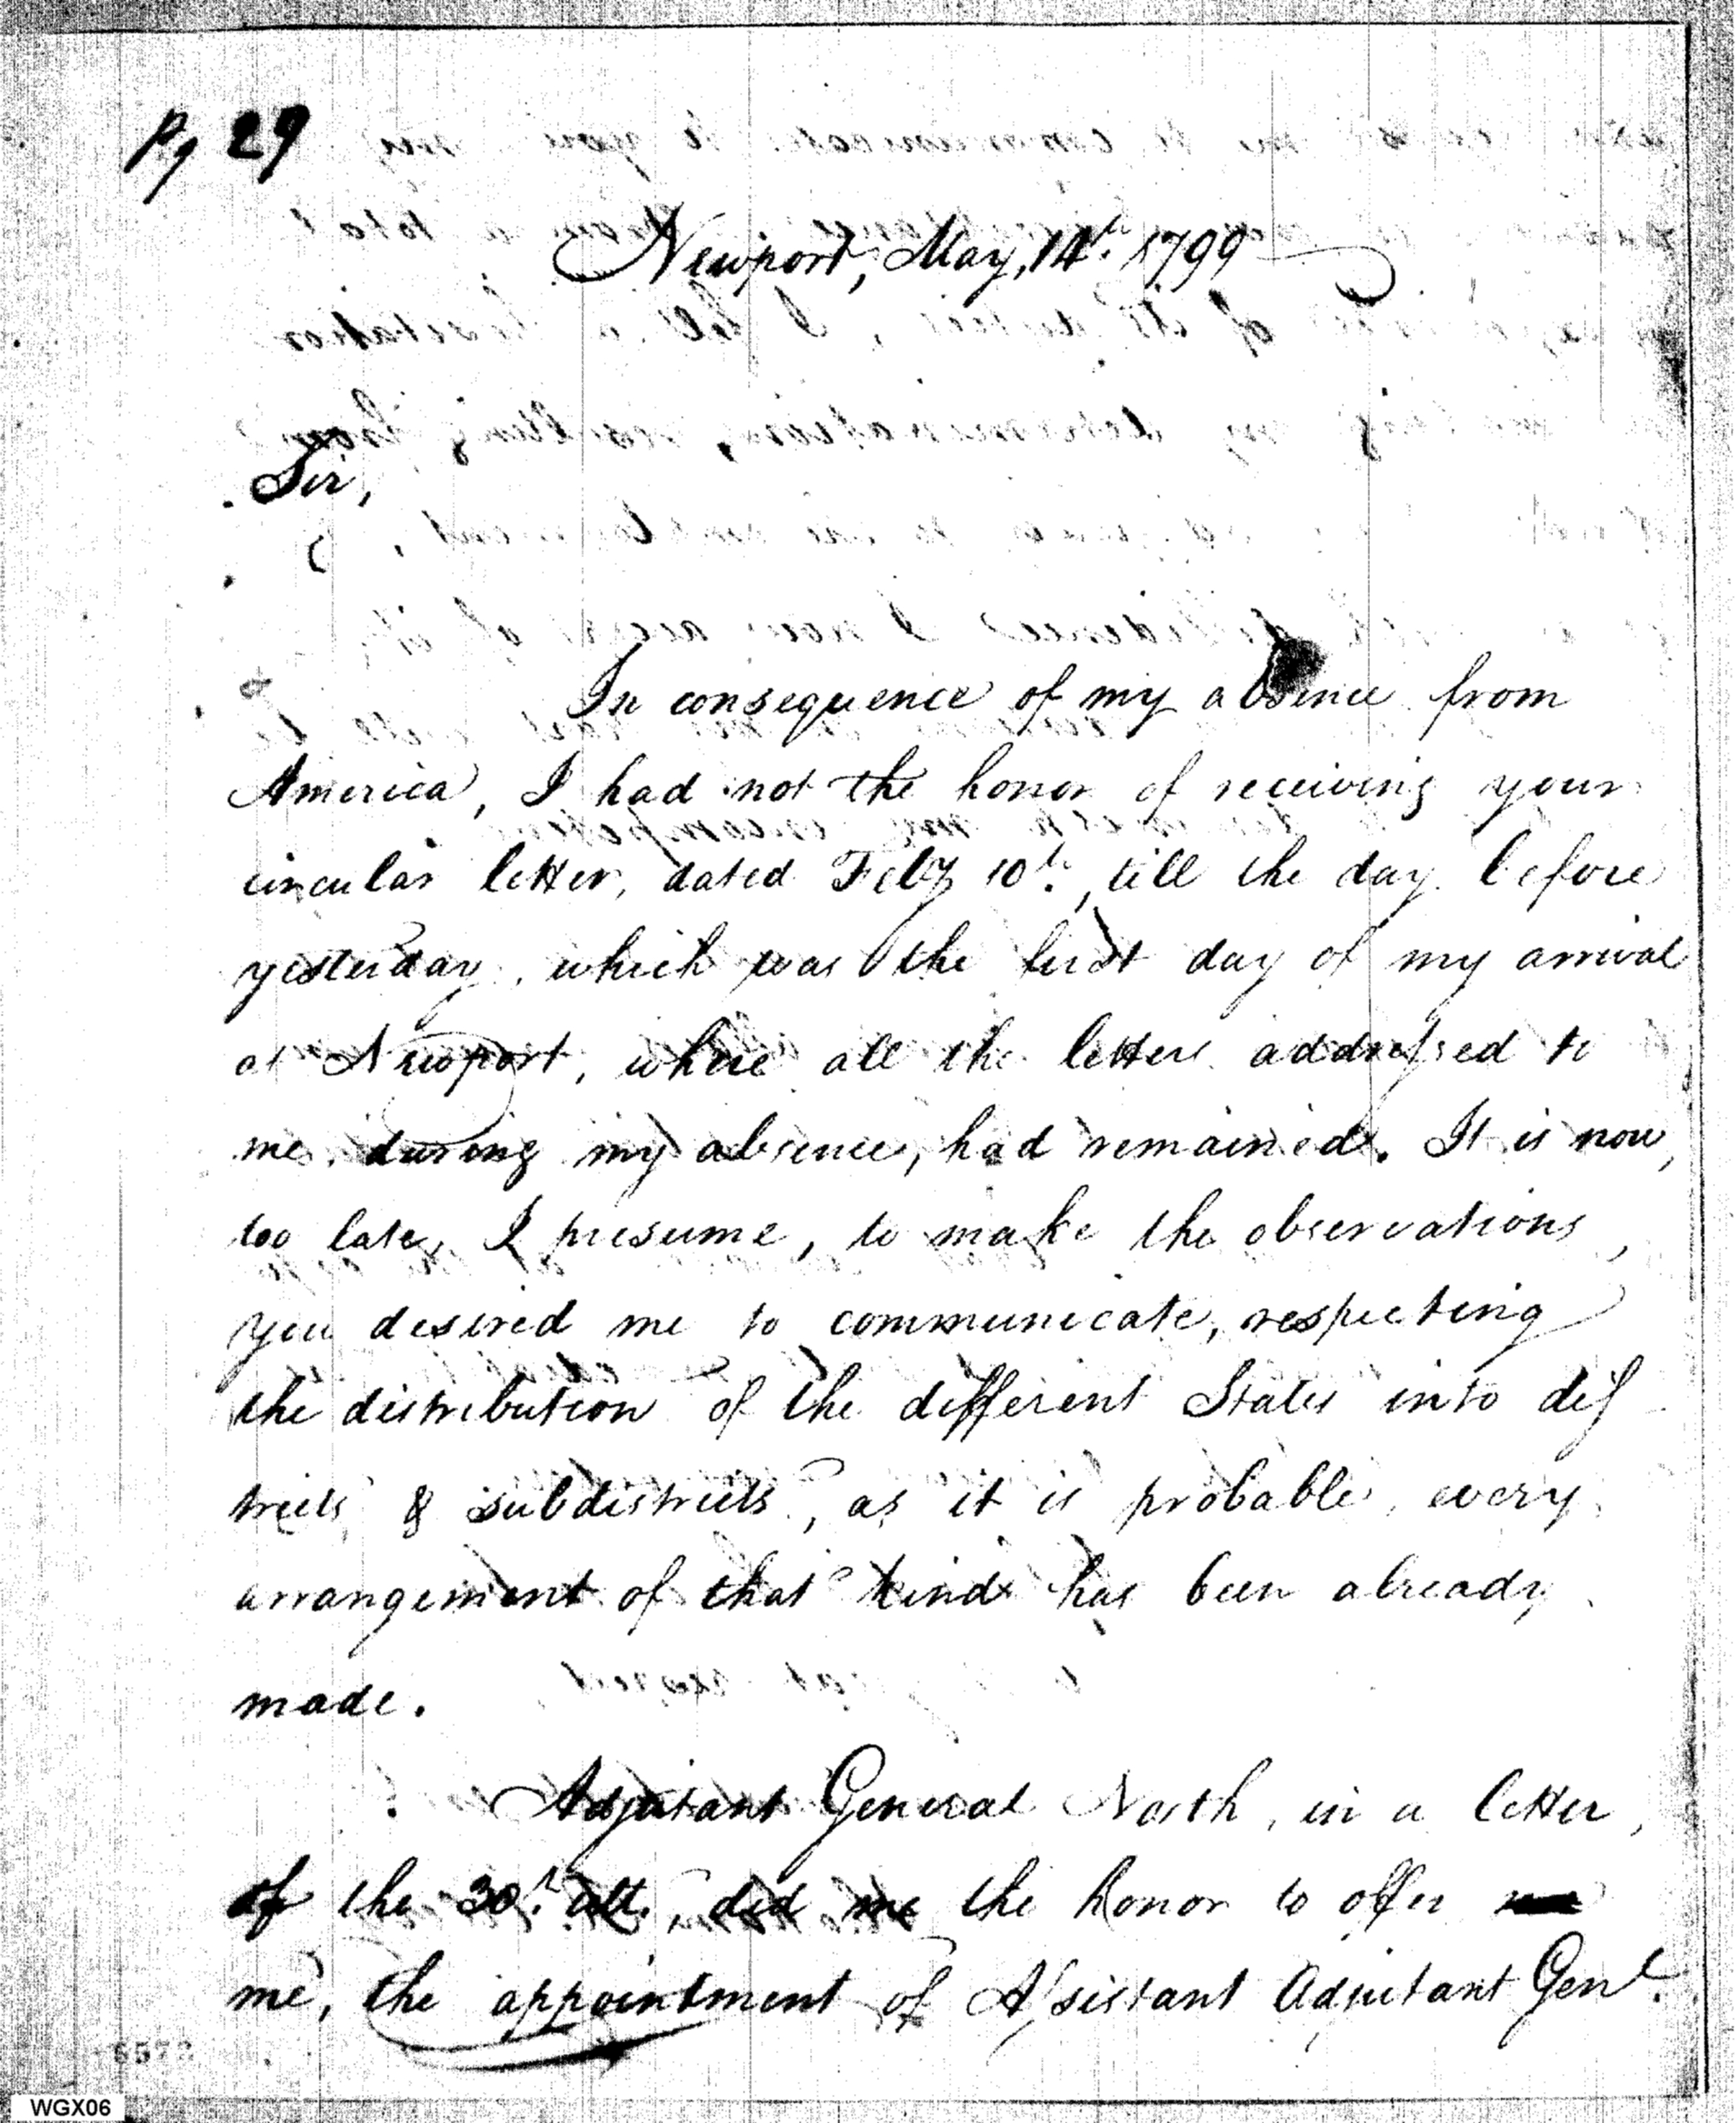 Pg 29
Newport, May, 14th. 1799
Sir,
In consequence of my absence from
America, I had not the honor of receiving your
circular letter, dated Feby 10th., till the day before
yesterday, which was the first day of my arrival
at Newport, where all the letters addressed to
me, during my absence, had remained. It is now,
too late, I presume, to make the observations,
you desired me to communicate, respecting
the distribution of the different States into dis
tricts & subdistricts, as it is probable, every
arrangement of that kind has been already
made.
Adjutant General North, in a letter,
of the 30th. ult., did me the honor to offer
me, the appointment of Assistant Adjutant Genl.
6572
WGX06